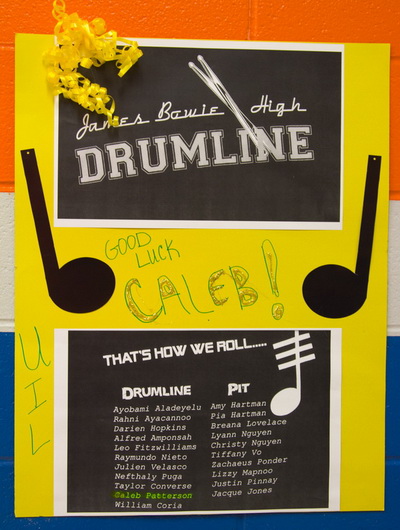 James Bowie High
DRUMLINE
GOOD
LUCK
CALEB!
UIL
THAT'S HOW WE ROLL.....
DRUMLINE
Ayobami Aladeyelu
Rahni Ayacannoo
Darien Hopkins
Alfred Amponsah
Leo Fitzwilliams
Raymundo Nieto
Julien Velasco
Nefthaly Puga
Taylor Converse
Caleb Patterson
William Coria
PIT
Amy Hartman
Pia Hartman
Breana Lovelace
Lyann Nguyen
Christy Nguyen
Tiffany Vo
Zachaeus Ponder
Lizzy Mapnoo
Justin Pinnay
Jacque Jones